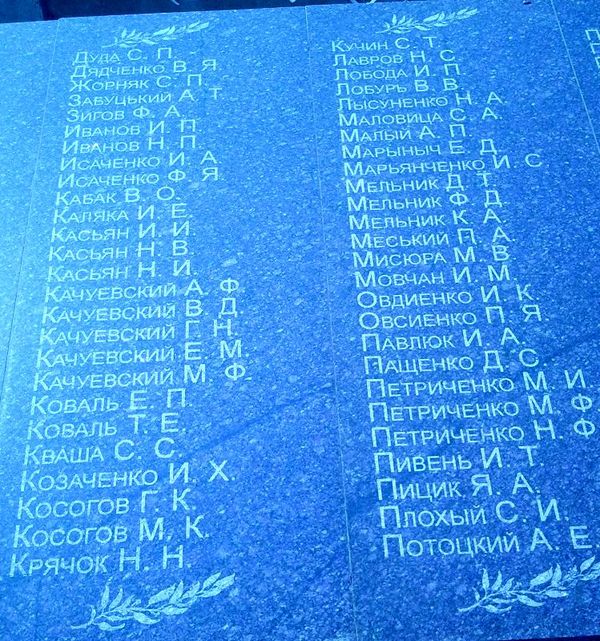 Дуда С. П.
Дядченко В. Я.
Жорняк С. П.
Забуцький А. Т.
Зигов Ф. А.
Иванов И. П.
Иванов Н. П.
Исаченко И. А.
Исаченко Ф. Я.
Кабак В. О.
Каляка И. Е.
Касьян И. И.
Касьян Н. В.
Касьян Н. И.
Качуевский А. Ф.
Качуевский В. Д.
Качуевский Г. Н.
Качуевский Е. М.
Качуевский М. Ф.
Коваль Е. П.
Коваль Т. Е.
Кваша С. С.
Козаченко И. Х.
Косогов Г. К.
Косогов М. К.
Крячок Н. Н.
Кучин С. Т.
Лавров Н. С.
Лобода И. П.
Лобурь В. В.
Лысуненко Н. А.
Маловица С. А.
Малый А. П.
Марыныч Е. Д.
Марьянченко И. С
Мельник Д. Т.
Мельник Ф. Д.
Мельник К. А.
Меський П. А.
Мисюра М. В.
Мовчан И. М.
Овдиенко И. К.
Овсиенко П. Я.
Павлюк И. А.
Пащенко Д. С.
Петриченко М. И.
Петриченко М. Ф.
Петриченко Н. Ф.
Пивень И. Т.
Пицик Я. А.
Плохый С. И.
Потоцкий А. Е.